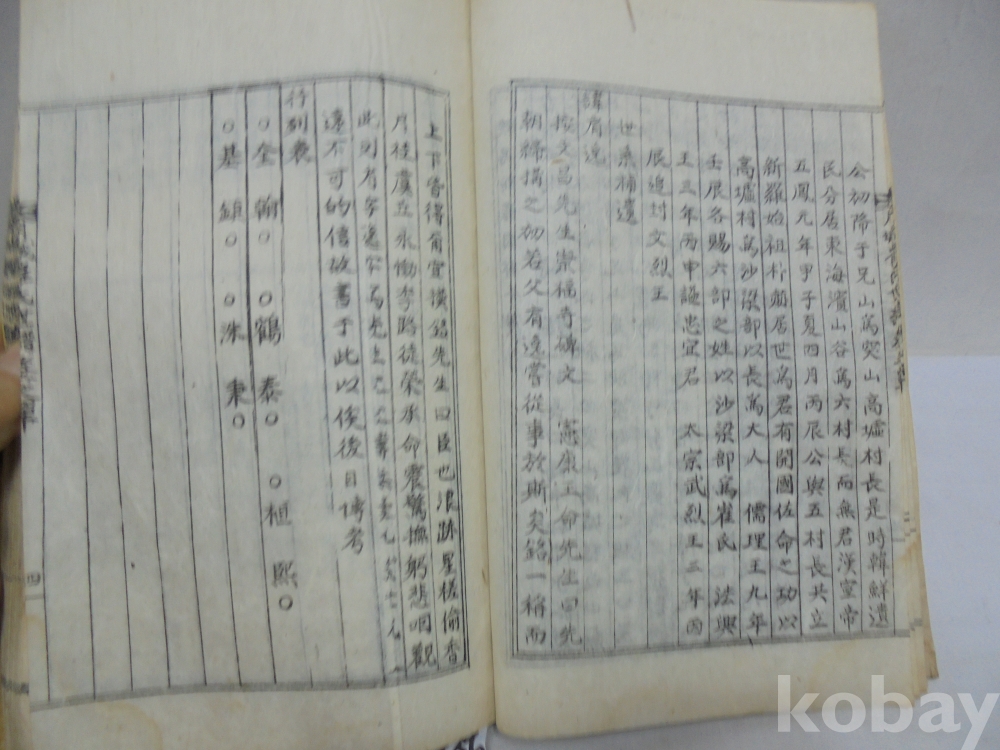 公初降于兄山爲突山高墟村長是時韓鮮遺
民分居東海濱山谷爲六村長而無君漢宣帝
五鳳元年甲子夏四月丙辰公與五村長共立
新羅始祖朴赫居世爲君有開國佐命之功以
高墟村爲沙梁部以長爲大人 儒理王九年
壬辰各賜六部之姓以沙梁部爲崔氏 法興
王三年丙申諡忠宣君 太宗武烈王三年丙
辰追封文烈王
世系補遺
諱肩逸
按文昌先生崇福寺碑文 憲康王命先生曰先
朝締搆之初若父有逸嘗從事於斯矣銘一稱而
上下皆得爾宜撰銘先生曰臣也浪跡星槎偷香
月桂虞丘永慟季路徒榮承命震驚撫躬悲咽觀
此則有
遠不可的信故書于此以俟後日博考
行列表
○全 翰○ ○鶴 泰○ ○桓 熙○
○基 鎭○ ○洙 秉○
四
kobay